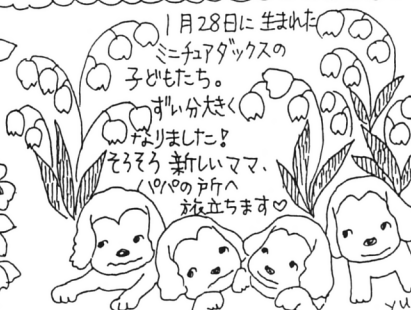 1月28日に生まれた
ミニチュアダックスの
子どもたち。
ずい分大きく
なりました!
そろそろ新しいママ、
パパの所へ
旅立ちます♡